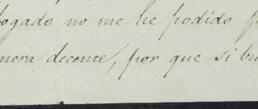 fogado no me he podido p
nora decente, por que si bu